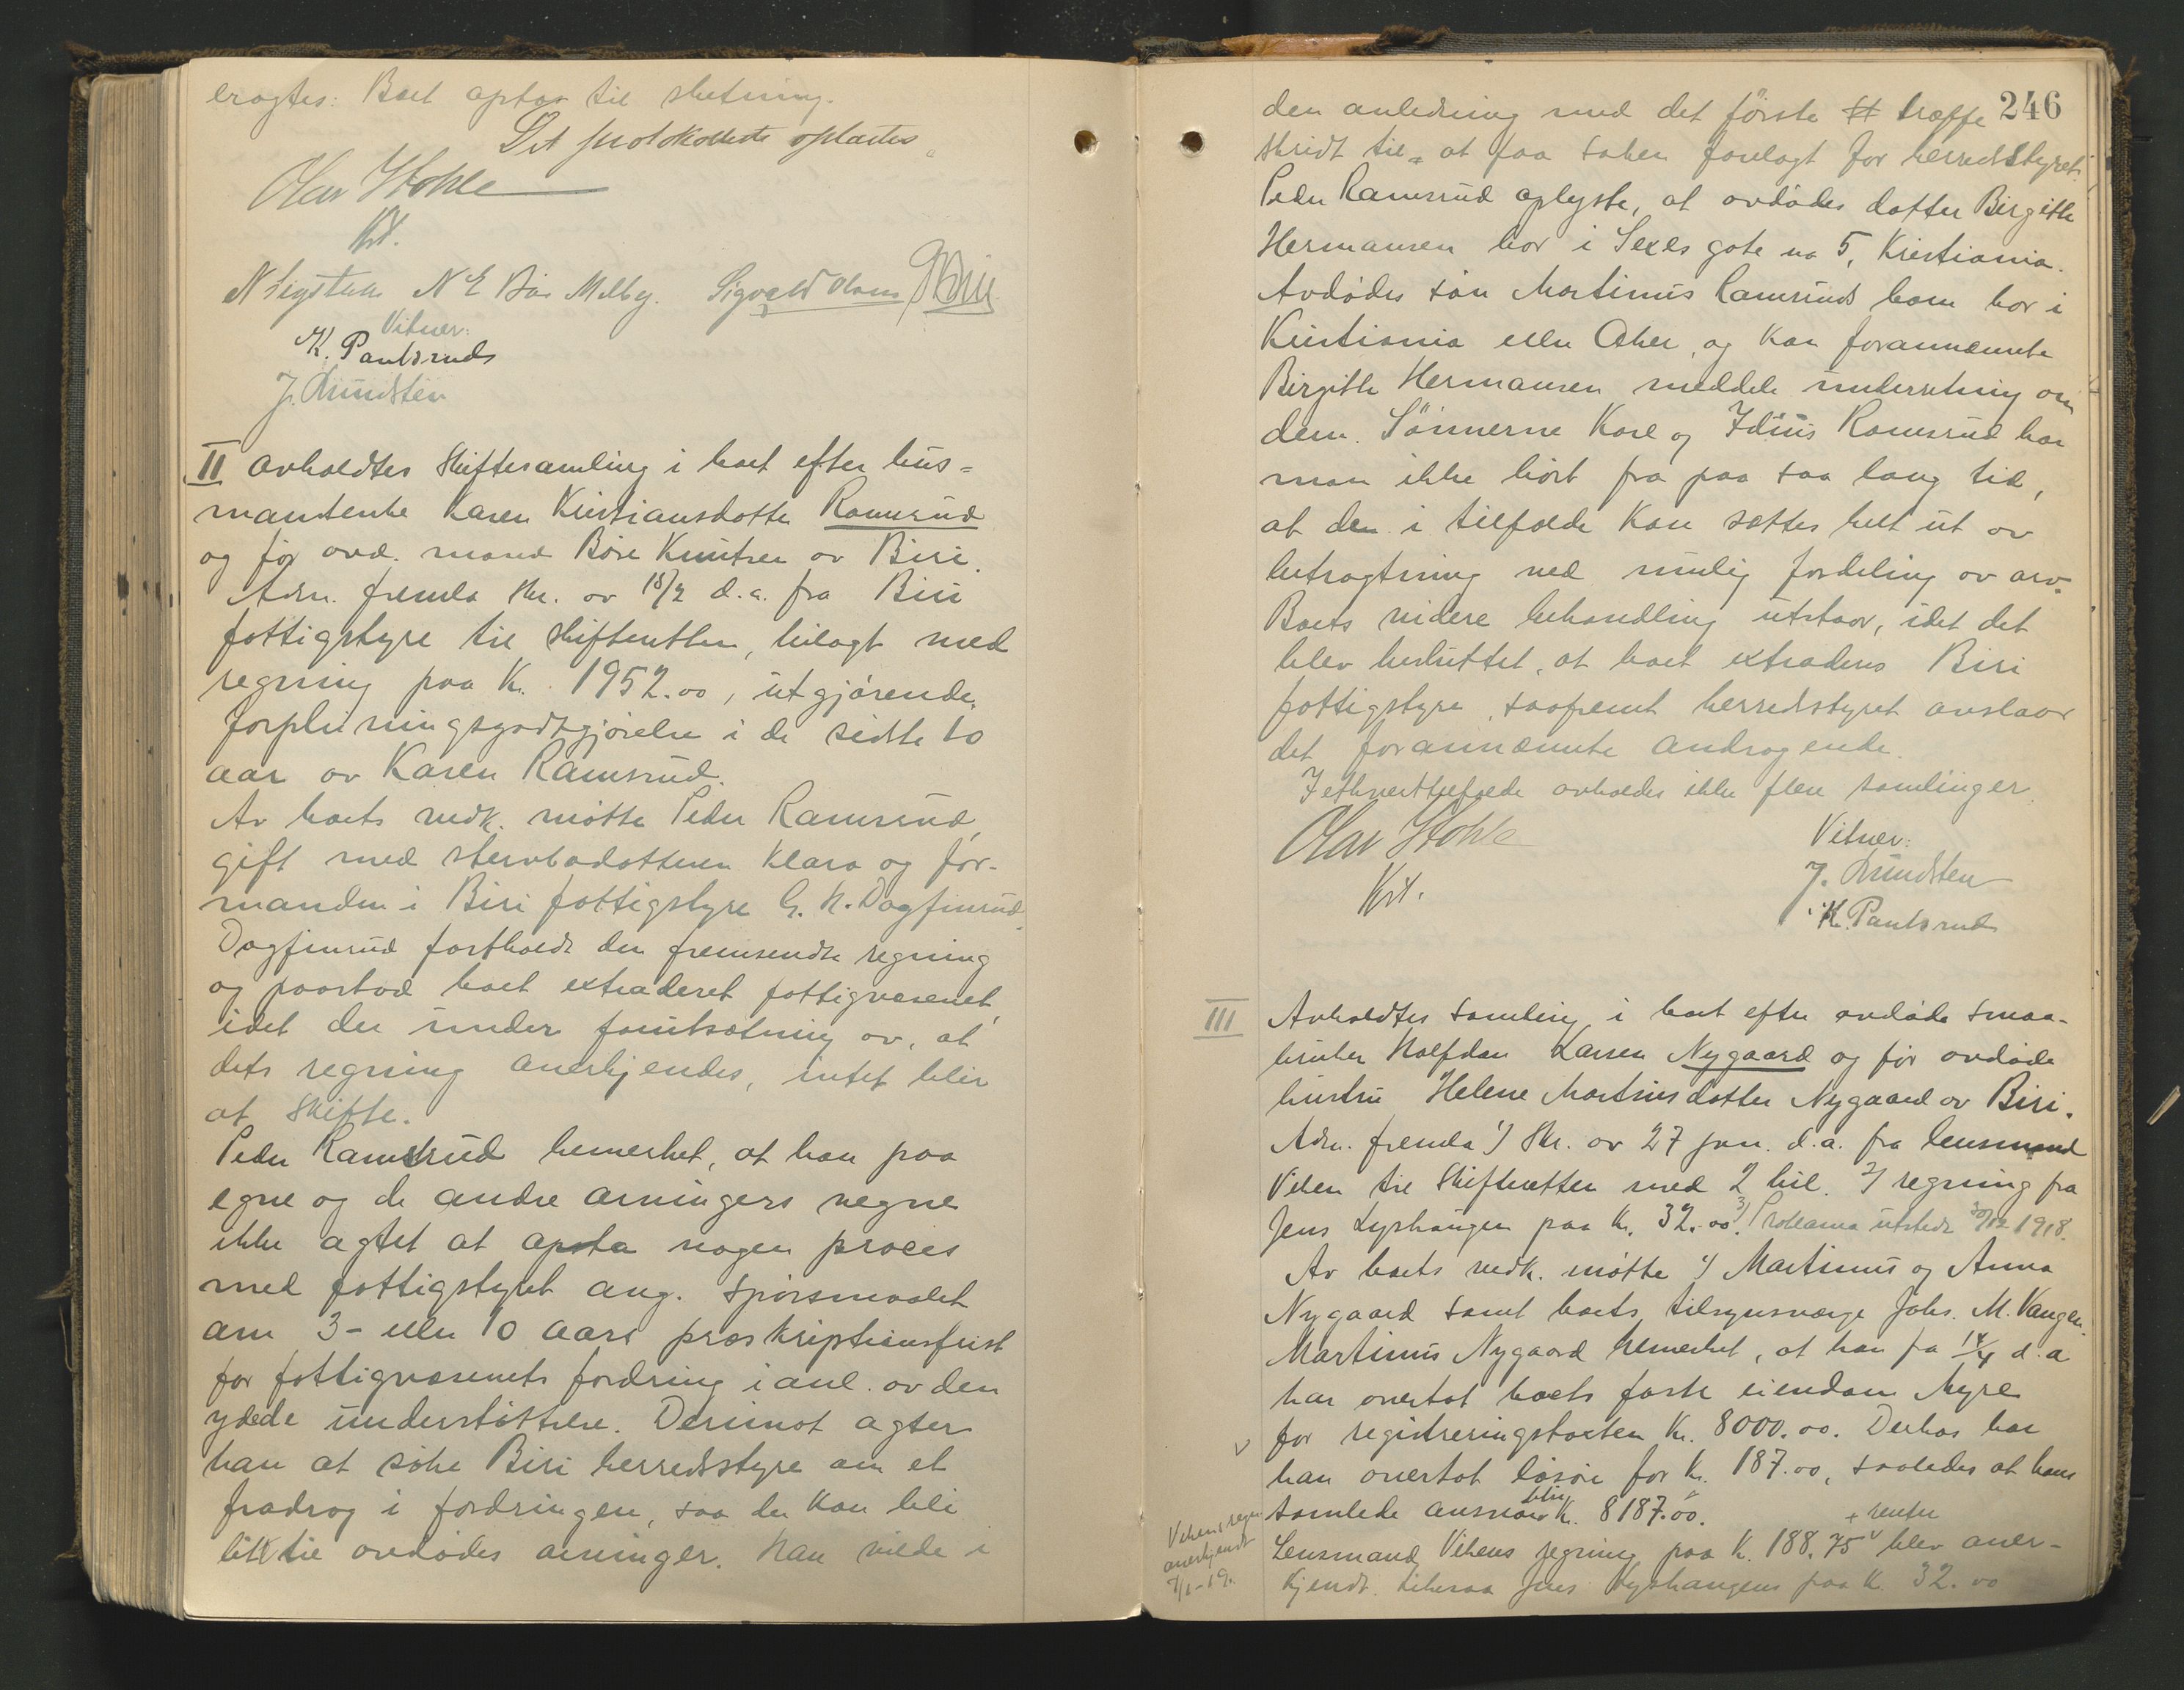 eragtes: Boet optas til slutning.
Det protokollerte oplæstes
Olav Stokke
Kst.
N Sigstad N E Bøe Melby. Sigvald Olsen
Vitner:
K. Paulsrud
J. Lundsten
II Avholdtes skiftesamling i boet efter hus=
mandsenke Karen Kristiansdotter Ramsrud
og før avd. mand Børe Knutsen av Biri.
Adm. fremla skr. av 18/2 d.a. fra Biri
fattigstyre til skifteretten, bilagt med
regning paa Kr. 1952.00, utgjørende
forpleiningsgodtgjørelse i de sidste 10
aar av Karen Ramsrud.
Av boets vedk. møtte Peder Ramsrud,
gift med stervbodatteren Klara og for-
manden i Biri fattigstyre G. N. Dagfinrud
Dagfinrud fastholdt den fremsendte regning
og paastod boet extraderet fattigvæsenet,
idet der under forutsætning av, at
dets regning anerkjendes, intet blir
at skifte.
Peder Ramsrud bemerket, at han paa
egne og de andre arvingers vegne
ikke agtet at opta nogen proces
med fattigstyret ang. spørsmaalet
om 3- eller 10 aars præskriptionsfrist
for fattigvæsenets fordring i anl. av den
ydede understøttelse. Derimot agter
han at søke Biri herredsstyre om et
fradrag i fordringen, saa der kan bli
litt til avdødes arvinger. Han vilde i
246
den anledning med det første træffe
skridt til at faa saken forelagt for herredsstyret.
Peder Ramsrud oplyste, at avdødes datter Birgitte
Hermansen bor i Sexes gate no 5, Kristiania.
Avdødes søn Martinus Ramsrud ham bor i
Kristiania eller Aker, og kan forannævnte
Birgitte Hermansen meddele underretning om
dem. Sønnerne Karl og Idius Ramsrud har
man ikke hørt fra paa saa lang tid,
at den i tilfælde kan sættes helt ut av
betragtning ved mulig fordeling av arv.
Boets videre behandling utstaar, idet det
blev besluttet, at boet extraderes Biri
fattigstyre, saafremt herredsstyret avslaar
det forannævnte andragende.
I ethvert tilfælde avholdes ikke flere samlinger.
Olav Stokke
Kst.
Vitner:
J. Lundsten
K. Paulsrud
III Avholdtes samling i boet efter avdøde smaa-
bruker Halfdan Larsen Nygaard og før avdøde
hustru Helene Martinusdotter Nygaard av Biri.
Adm. fremla 1) Skr. av 27 jan. d.a. fra lensmand
Viken til Skifteretten med 2 bil. 2) regning fra
Jens Lyshaugen paa Kr. 32.00. 3) Proklama utstedt 30/12 1918.
Av boets vedk. møtte 1) Martinus og Anna
Nygaard samt boets tilsynsværge Johs. M. Vangen.
Martinus Nygaard bemerket, at han fra 14/4 d.a.
har overtat boets faste eiendom Myre
for registreringstaksten Kr. 8000.00. Derhos har
han overtat løsøre for Kr. 187.00, saaledes at hans
samlede ansvar blir Kr. 8187.00.
+ renter
Lensmand Vikens regning paa Kr. 188.75 blev aner-
kjendt. Likesaa Jens Lyshaugens paa Kr. 32.00
Vikens regn
anerkjendt
7/1-19.